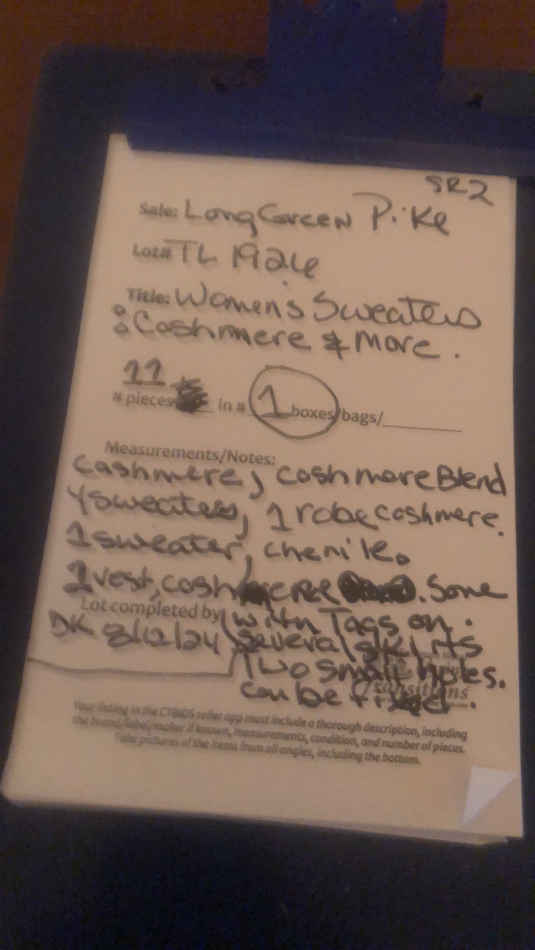 SR2
Sale: Long Green Pike
Lot# TL 1926
Title: Women's Sweaters
: Cashmere & More.
11
# pieces in # 1 boxes/bags/
Measurements/Notes:
Cashmere, Cashmere Blend
4 sweaters, 1 robe cashmere.
1 sweater, chenile.
1 vest, cashmere. Some
Lot completed by with Tags on.
DK 8/12/24 Several skirts
Two small holes.
transitions
can be fixed.
Your listing in the CTBIDS seller app must include a thorough description, including
the brand/label/maker if known, measurements, condition, and number of pieces.
Take pictures of the items from all angles, including the bottom.